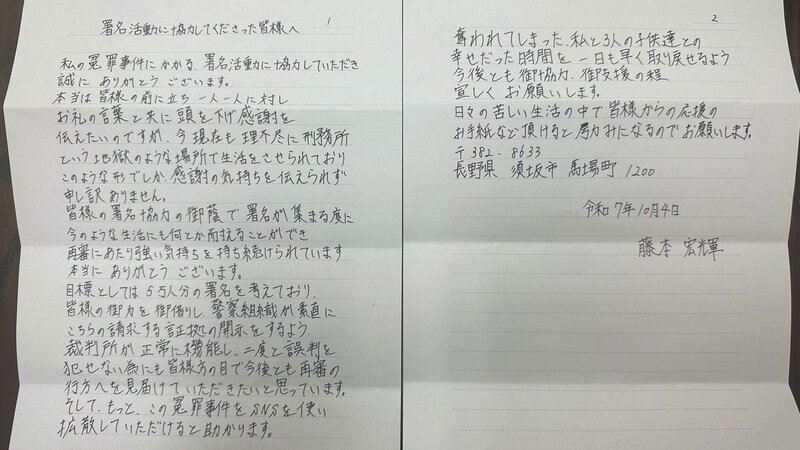 1
署名活動に協力してくださった皆様へ
私の冤罪事件にかかる署名活動に協力していただき
誠に ありがとう ございます。
本当は 皆様の前に立ち 一人一人に対し
お礼の言葉と共に 頭を下げ 感謝を
伝えたいのですが、今現在も 理不尽に刑務所
という 地獄のような 場所で生活をさせられており
このような形でしか、感謝の気持ちを 伝えられず
申し訳ありません。
皆様の署名協力の御蔭で署名が集まる度に
今のような生活にも何とか耐えることができ
再審にあたり強い気持ちを持ち続けられています
本当に ありがとう ございます。
目標としては 5万人分の署名を考えており、
皆様の御力を御借りし、警察組織が素直に
こちらの請求する証拠の開示をするよう、
裁判所が正常に機能し、二度と誤判を
犯せない為にも皆様方の目で今後とも再審の
行方へを見届けていただきたいと思っています。
そして、もっと、この冤罪事件をSNSを使い
拡散していただけると助かります。
2
奪われてしまった、私と3人の子供達との
幸せだった時間を 一日も早く取り戻せるよう
今後とも御協力、御支援の程
宜しく お願いします。
日々の苦しい生活の中で皆様からの応援の
お手紙など頂けると励みになるのでお願いします。
〒382-8633
長野県 須坂市 馬場町 1200
令和7年10月4日
藤本 宏輝